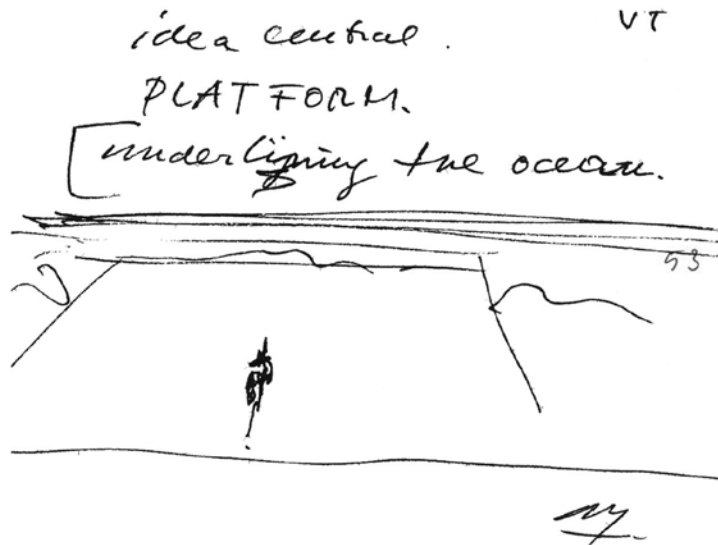 idea central.
VT
PLATFORM.
underlining the ocean.
93